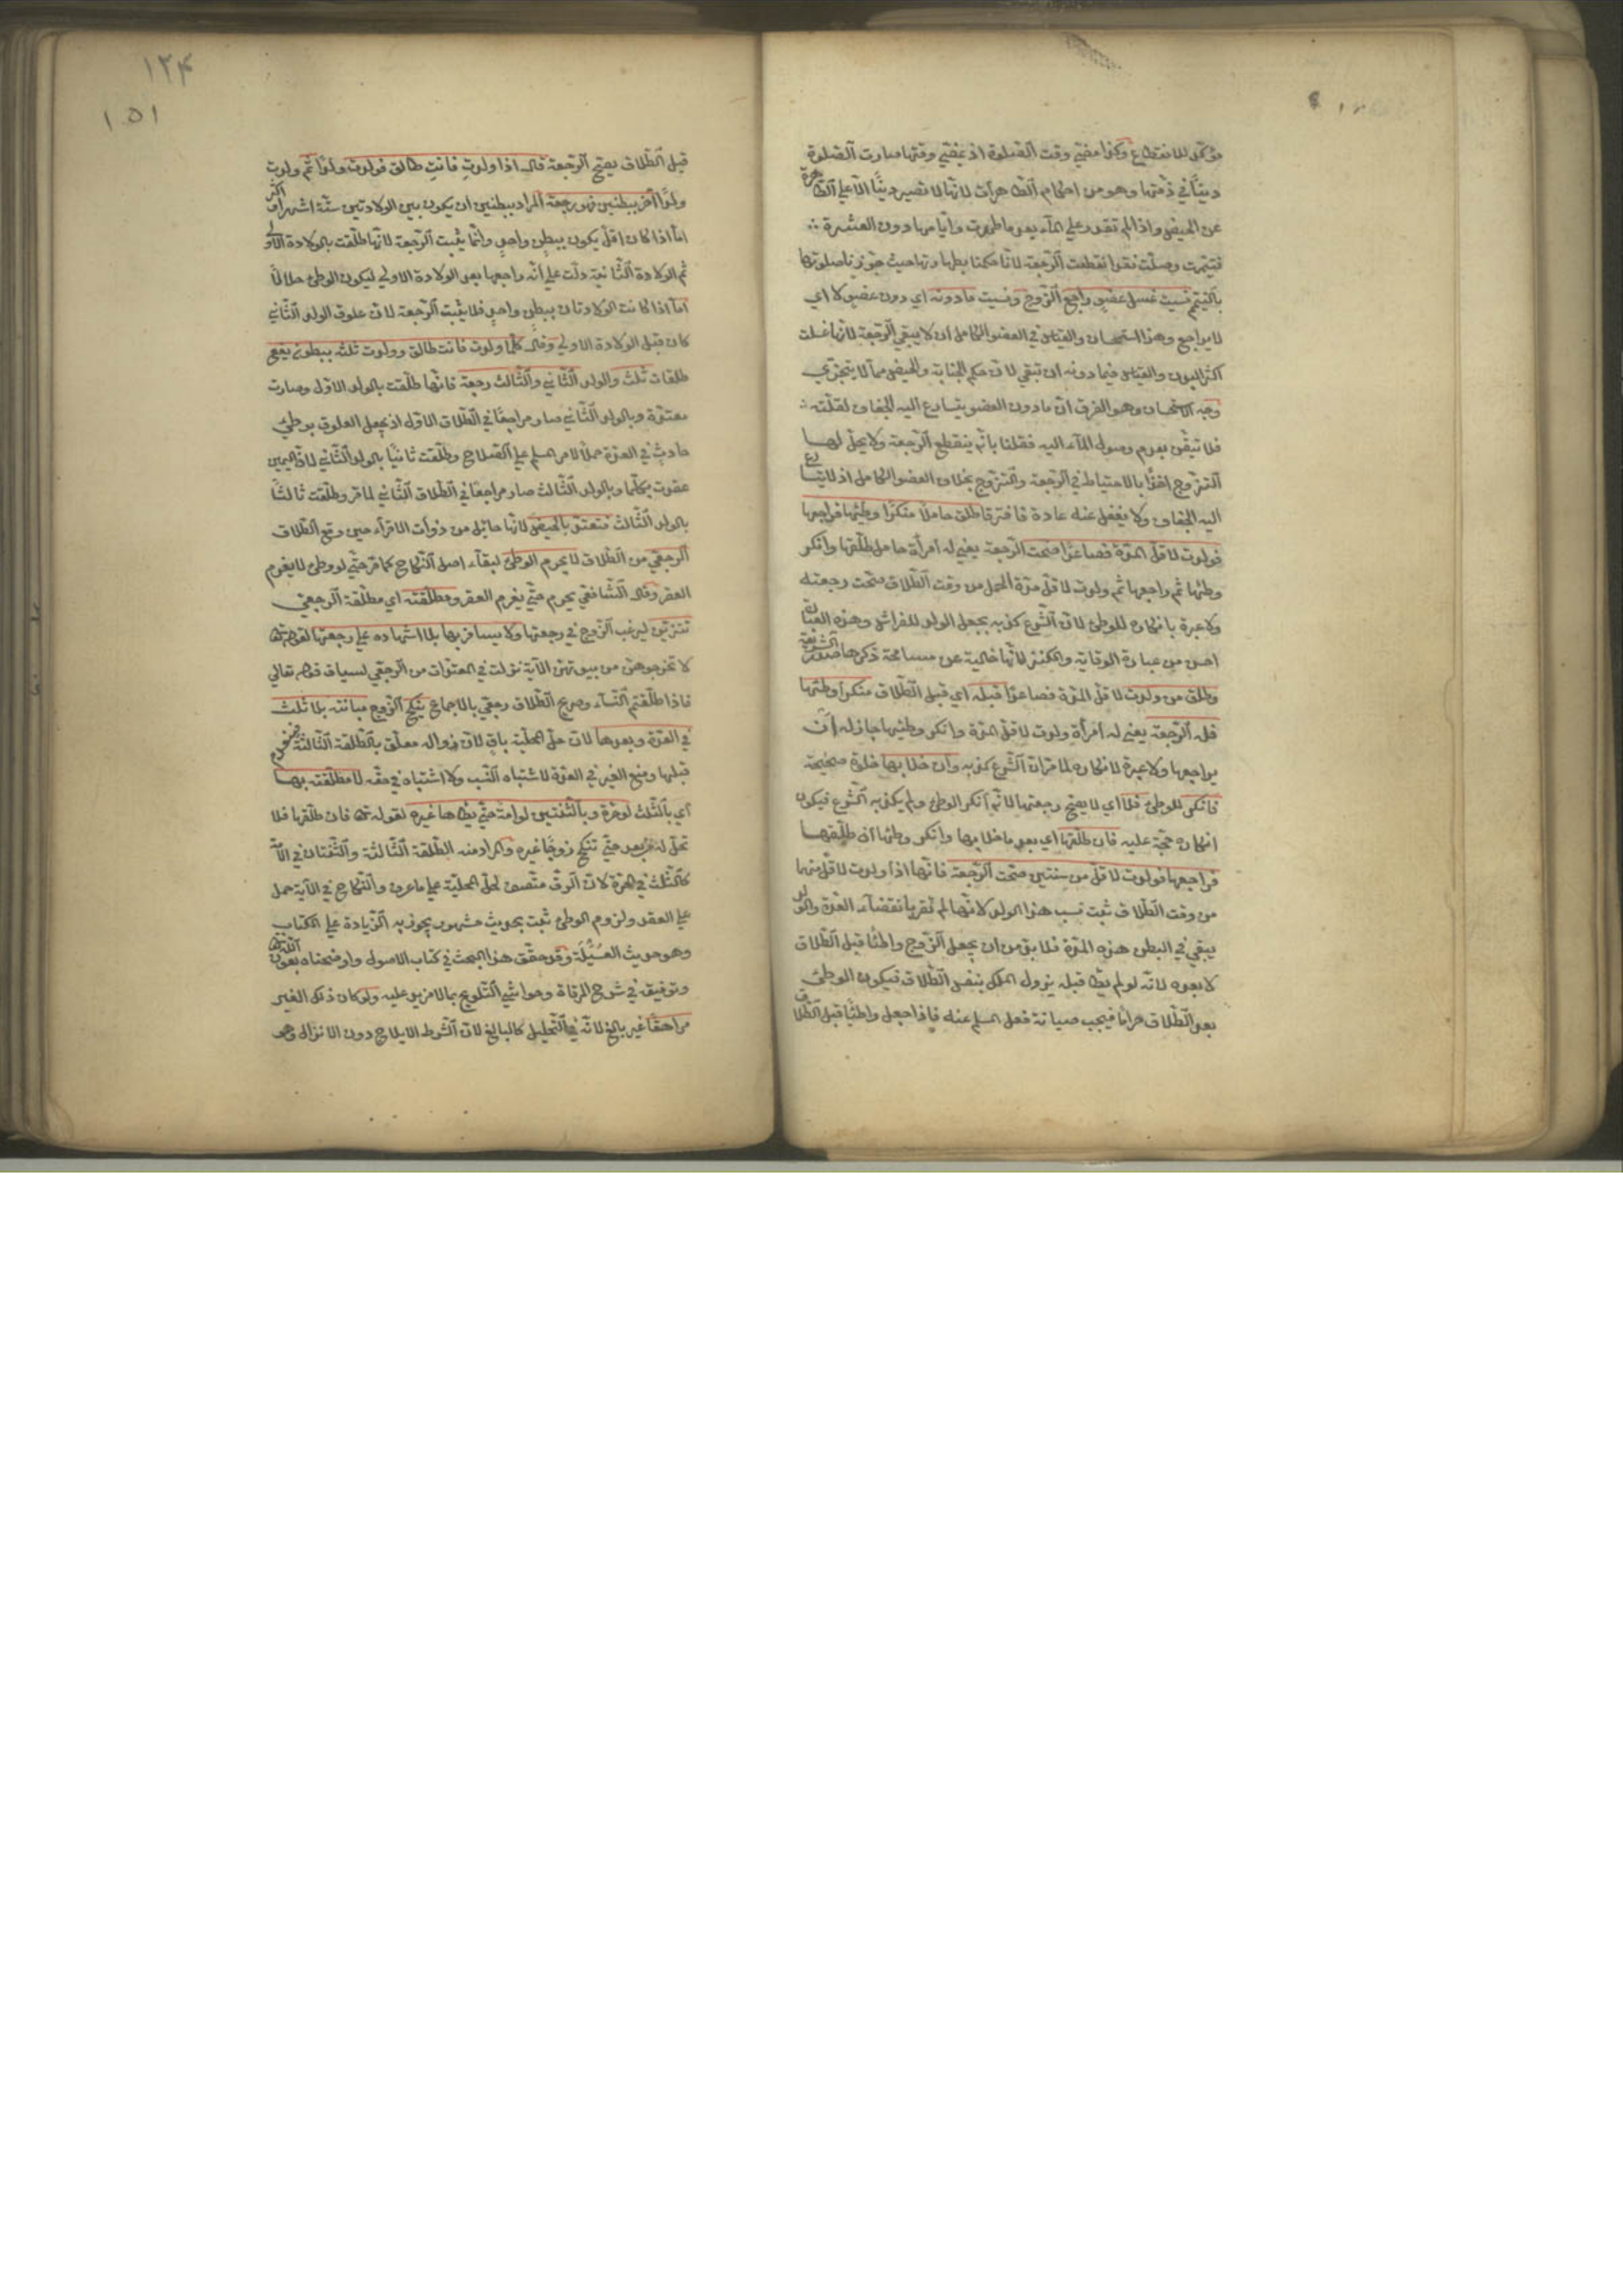 مؤكد للانقطاع وكذا مضي وقت الصلوة اذ بمضي وقتها صارت الصلوة
دينا في ذمتها وهو من احكام الطاهرات لانها لا تصير دينا الا على الطاهرة
عن الحيض واذا لم تقدر على الماء بعد ما طهرت وايامها دون العشرة
فتيممت وصلت نقدا نقطعت الرجعة لانا حكمنا بطهارتها حيث جوزنا صلوتها
بالتيمم نسيت غسل عضو راجع الزوج ونسيت ما دونه اي دون عضو لا اي
لا يراجع وهذا استحسان والقياس في العضو الكامل ان لا يبقى الرجعة لانها غسلت
اكثر البدن والقياس فيما دونه ان تبقى لان حكم الجنابة والحيض مما لا يتجزى
وجه الاستحسان وهو الفرق ان ما دون العضو يتسارع اليه الجفاف لقلته
فلا تيقن بعدم وصول الماء اليه فقلنا بانه ينقطع الرجعة ولا يحل لها
التزوج اخذا بالاحتياط في الرجعة والتزوج بخلاف العضو الكامل اذ لا يتسارع
اليه الجفاف ولا يغفل عنه عادة فافترقا طلق حاملا منكرا وطئها فراجعها
فولدت لاقل المدة فصاعدا صحت الرجعة يعني له امرأة حامل طلقها وانكر
وطئها ثم راجعها ثم ولدت لاقل مدة الحمل من وقت الطلاق صحت رجعته
ولا عبرة بانكاره للوطئ لان الشرع كذبه بجعل الولد للفراش وهذه العبارة
احسن من عبارة الوقاية والكنز لانها خالية عن مسامحة ذكرها صدر الشريعة
وطلق من ولدت لاقل المدة فصاعدا قبله اي قبل الطلاق منكرا وطئها
فله الرجعة يعني له امرأة ولدت لاقل المدة وانكر وطئها جاز له ان
يراجعها ولا عبرة لانكاره لما مر ان الشرع كذبه وان خلا بها خلوة صحيحة
فانكر للوطئ فلا اي لا يصح رجعتها لانه انكر الوطئ ولم يكذبه الشرع فيكون
انكاره حجة عليه فان طلقها اي بعد ما خلا بها وانكر وطئها ان طلقها
فراجعها فولدت لاقل من سنتين صحت الرجعة فانها اذا ولدت لاقل منها
من وقت الطلاق ثبت نسب هذا الولد لانها لم تقر بانقضاء العدة والولد
يبقى في البطن هذه المدة فلا بد من ان يجعل الزوج واطئا قبل الطلاق
لا بعده لانه لو لم يطأ قبله يزول الملك بنفس الطلاق فيكون الوطئ
بعد الطلاق حراما فيجب صيانة فعل المسلم عنه فاذا جعل واطئا قبل الطلاق
١٢۴
١٥١
قبل الطلاق يصح الرجعة قال اذا ولدت فانت طالق فولدت ولدا ثم ولدت
ولدا آخر ببطنين فهو رجعة المراد ببطنين ان يكون بين الولادتين ستة اشهر او اكثر
اما اذا كان اقل يكون ببطن واحد وانما يثبت الرجعة لانها طلقت بالولادة الاولى
ثم الولادة الثانية دلت على انه راجعها بعد الولادة الاولى ليكون الوطئ حلالا
اما اذا كانت الولادتان ببطن واحد فلا يثبت الرجعة لان علوق الولد الثاني
كان قبل الولادة الاولى وقال كلما ولدت فانت طالق وولدت ثلثة ببطون يقع
طلقات ثلث والولد الثاني والثالث رجعة فانها طلقت بالولد الاول وصارت
معتدة وبالولد الثاني صار مراجعا في الطلاق الاول اذ يجعل العلوق بوطئ
حادث في العدة حملا لامر المسلم على الصلاح وطلقت ثانيا بالولد الثاني لان اليمين
عقدت بكلما وبالولد الثالث صار مراجعا في الطلاق الثاني لما مر وطلقت ثالثا
بالولد الثالث فتعتد بالحيض لانها حائل من ذوات الاقراء حين وقع الطلاق
الرجعي من الطلاق لا يحرم الوطئ لبقاء اصل النكاح كما مر حتى لو وطئ لا يغرم
العقر وقال الشافعي يحرم حتى يغرم العقر ومطلقته اي مطلقة الرجعي
تتزين ليرغب الزوج في رجعتها ولا يسافر بها بلا اشهاده على رجعتها لقوله تعالى
لا تخرجوهن من بيوتهن الآية نزلت في المعتدات من الرجعي لسياق قوله تعالى
فاذا طلقتم النساء وصريح الطلاق رجعي بالاجماع ينكح الزوج مبانته بلا ثلث
في العدة وبعدها لان حل المحلية باق لان زواله معلق بالطلقة الثالثة فينعدم
قبلها ومنع الغير في العدة لاشتباه النسب ولا اشتباه في حقه لا مطلقته بها
اي بالثلث لو حرة وبالثنتين لو امة حتى يطأها غيره لقوله تعالى فان طلقها فلا
تحل له من بعد حتى تنكح زوجا غيره والمراد منه الطلقة الثالثة والثنتان في الامة
كالثلث في الحرة لان الرق منصف لحل المحلية على ما عرف والنكاح في الآية حمل
على العقد ولزوم الوطئ ثبت بحديث مشهور يجوز به الزيادة على الكتاب
وهو حديث العسيلة وقد حقق هذا البحث في كتاب الاصول واوضحناه بعون الله تعالى
وتوفيقه في شرح المرقاة وحواشي التلويح بما لا مزيد عليه ولو كان ذلك الغير
مراهقا غير بالغ لانه في التحليل كالبالغ لان الشرط الايلاج دون الانزال وهو